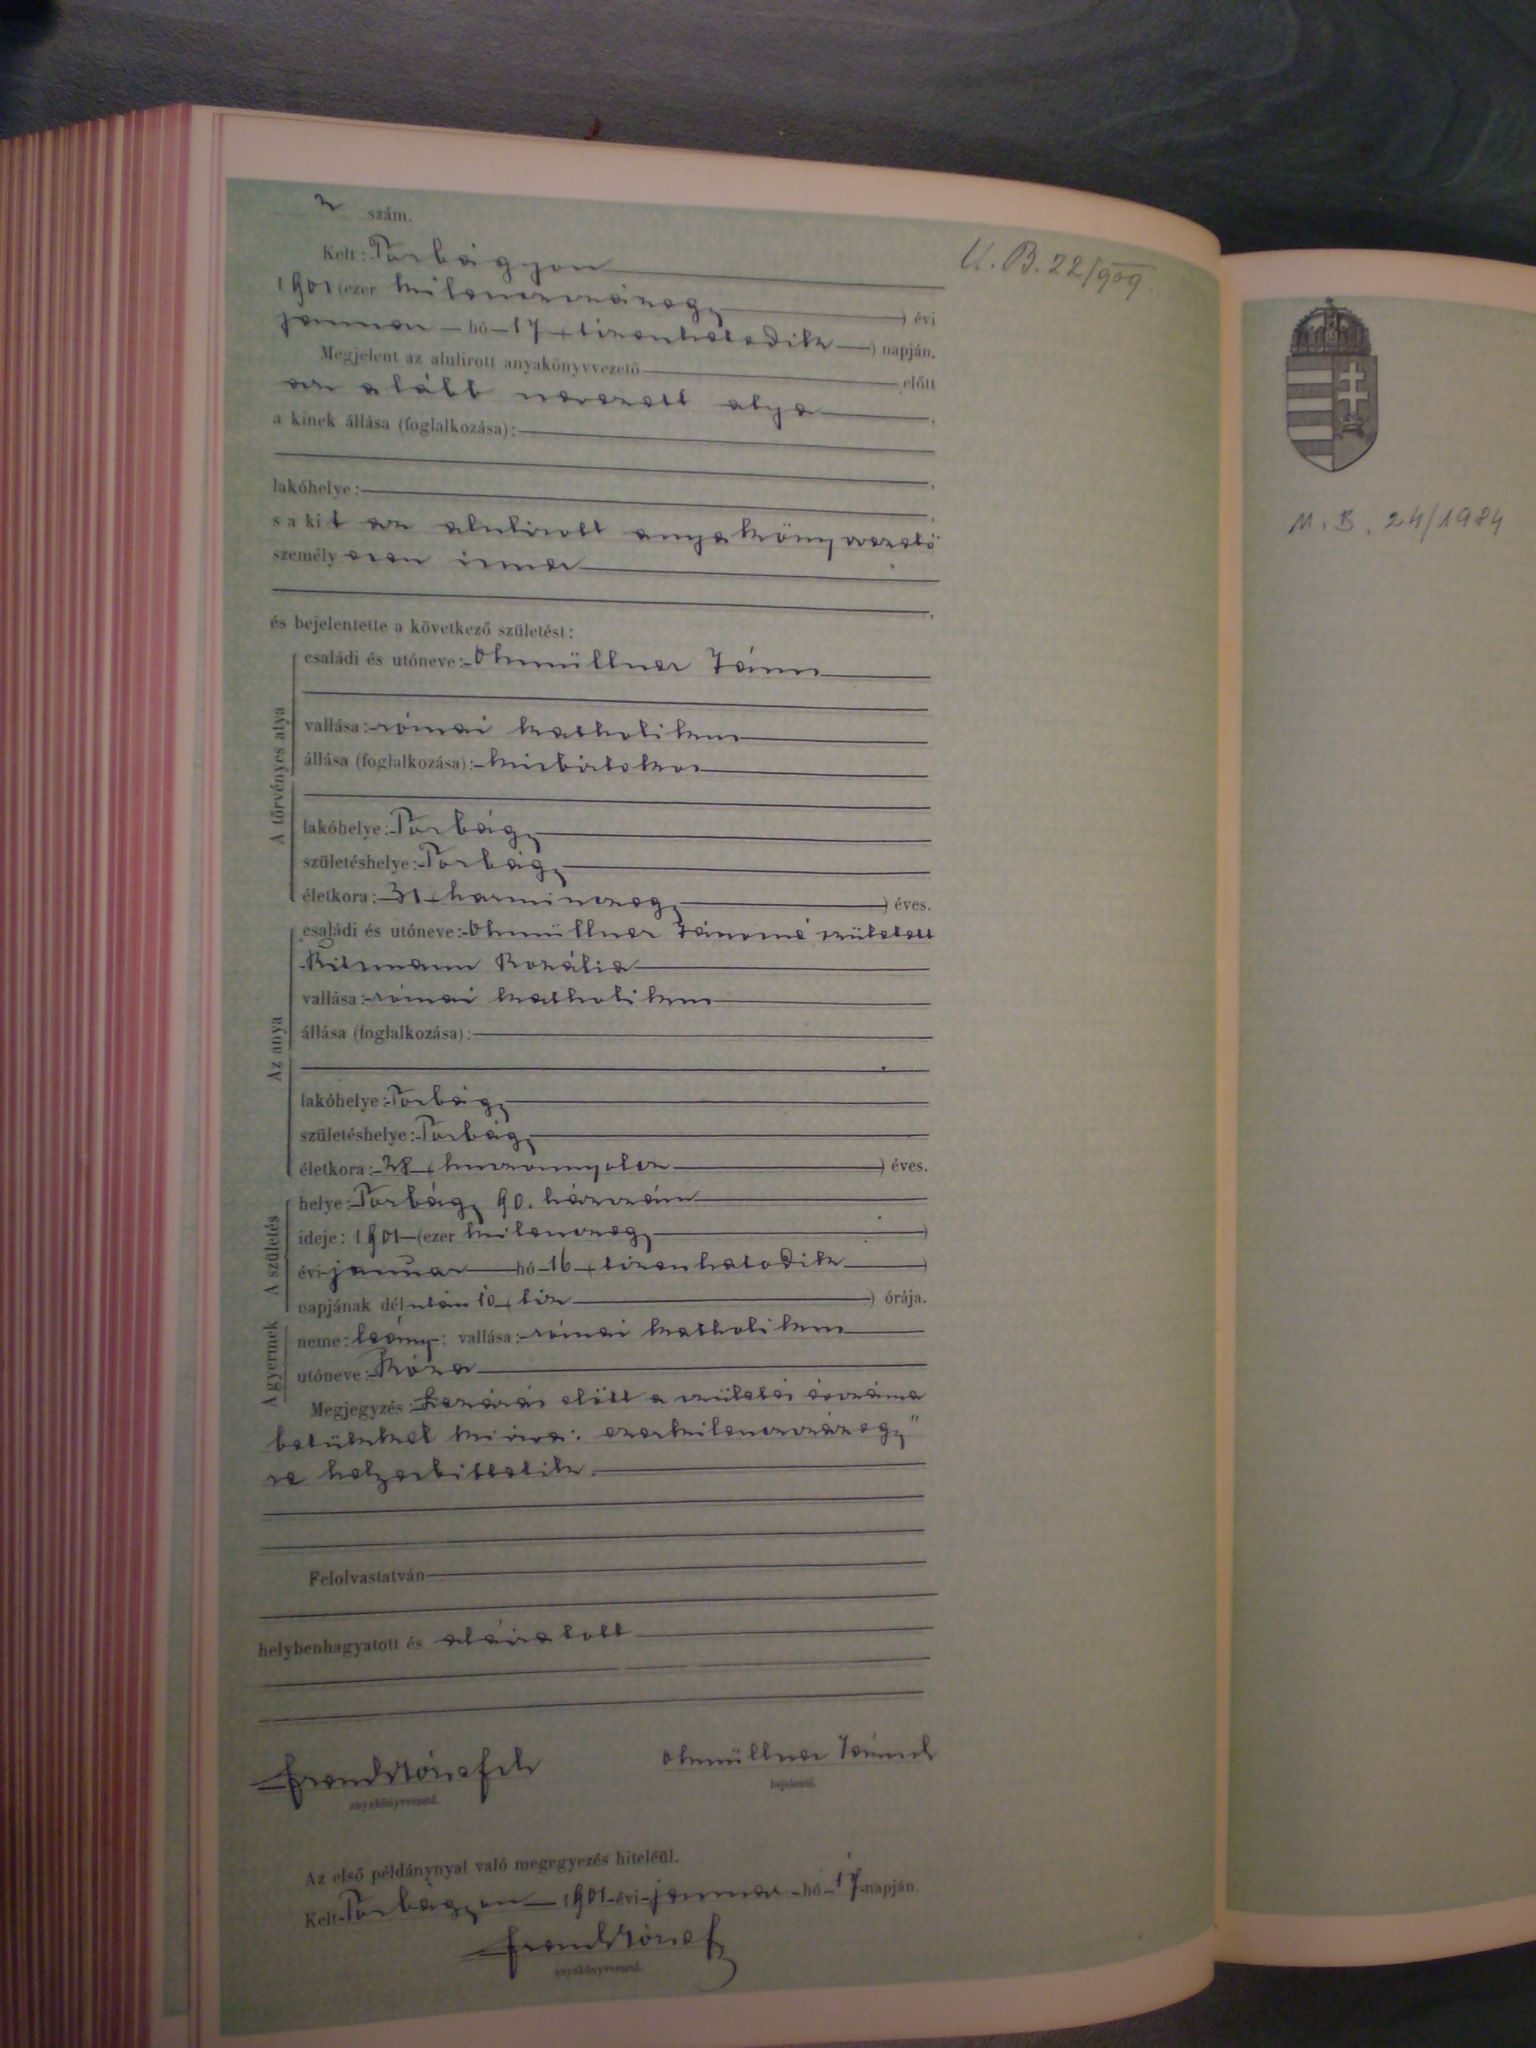 2 szám.
Kelt: Torbágyon
U. B. 22/909
1901 (ezer kilenczszázegy) évi
januar hó 17 (tizenhetedik) napján.
Megjelent az alulirott anyakönyvvezető előtt
az alább nevezett atya,
a kinek állása (foglalkozása):
lakóhelye:
s a kit az alulirott anyakönyvvezető
személyesen ismer
és bejelentette a következő születést:
A törvényes atya
családi és utóneve: Ohmüllner János
vallása: római katholikus
állása (foglalkozása): kisbirtokos
lakóhelye: Torbágy
születéshelye: Torbágy
életkora: 31 (harminczegy) éves.
Az anya
családi és utóneve: Ohmüllner Jánosné született
Ritzmann Rozália
vallása: római katholikus
állása (foglalkozása):
lakóhelye: Torbágy
születéshelye: Torbágy
életkora: 28 (huszonnyolcz) éves.
A születés
helye: Torbágy 90. házszám
ideje: 1901 (ezer kilenczegy)
évi január hó 16 (tizenhatodik)
napjának délután 10 (tiz) órája.
A gyermek
neme: leány; vallása: római katholikus
utóneve: Róza
Megjegyzés: Lezárás előtt a születési évszáma
betükkel kiirva: ezerkilenczszázegy"
re helyesbittetik.
Felolvastatván
helybenhagyatott és aláiratott
József sk
anyakönyvvezető.
Ohmüllner János sk
bejelentő.
Az első példánynyal való megegyezés hiteléül.
Kelt Torbágyon 1901 évi januar hó 17 napján.
József
anyakönyvvezető.
M. B. 24/1984